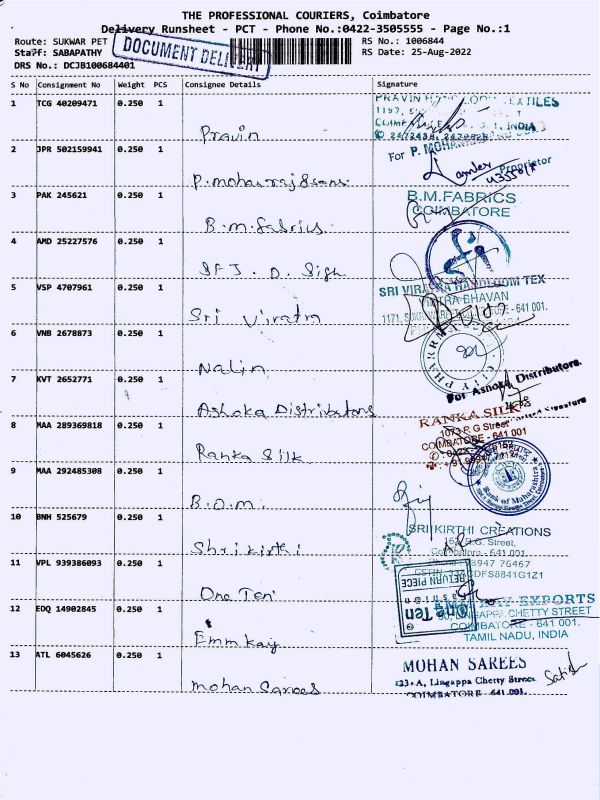 THE PROFESSIONAL COURIERS, Coimbatore
Delivery Runsheet - PCT - Phone No.:0422-3505555 - Page No.:1
Route: SUKWAR PET
RS No.: 1006844
Staff: SABAPATHY
RS Date: 25-Aug-2022
DRS No.: DCJB100684401
DOCUMENT DELIVERY
S No Consignment No Weight PCS Consignee Details Signature
1 TCG 40209471 0.250 1 Pravin
TEXTILES
INDIA
2 JPR 502159941 0.250 1 P. mohanraj & sons
For P. MOHAN
Proprietor
3 PAK 245621 0.250 1 B. m. fabrics
B.M.FABRICS
COIMBATORE
4 AMD 25227576 0.250 1
5 VSP 4707961 0.250 1 Sri Viratra
SRI VIRATRA HANDLOOM TEX
VIRATRA BHAVAN
1171, - 641 001.
6 VNB 2678873 0.250 1 Nalin
CITY PHARMA
7 KVT 2652771 0.250 1 Ashoka Distributors
For Ashoka Distributors.
Signature
8 MAA 289369818 0.250 1 Ranka Silk
RANKA SILK
R G Street
COIMBATORE - 641 001
9 MAA 292485308 0.250 1 B.O.M.
Bank of Maharashtra
10 BNH 525679 0.250 1 Shri kirthi
SRI KIRTHI CREATIONS
R.G. Street,
Coimbatore - 641 001.
98947 76467
11 VPL 939386093 0.250 1 One Ten
RETURN PIECE
One Ten
12 EDQ 14902845 0.250 1 Emmkay
EXPORTS
LINGAPPA CHETTY STREET
COIMBATORE - 641 001.
TAMIL NADU, INDIA
13 ATL 6045626 0.250 1 mohan Sarees
MOHAN SAREES
123-A, Lingappa Chetty Street
COIMBATORE - 641 001.
Satish